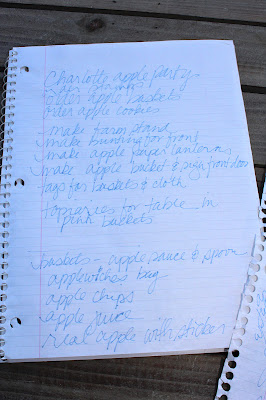 Charlotte apple party
order apple baskets
order apple cookies
make farm stand
make bunting for front
make apple paper lanterns
make apple basket & sign front door
tags for baskets & cloth
topiaries for table in
pink baskets
baskets - apple sauce & spoon
applewiches bag
apple chips
apple juice
real apple with sticker